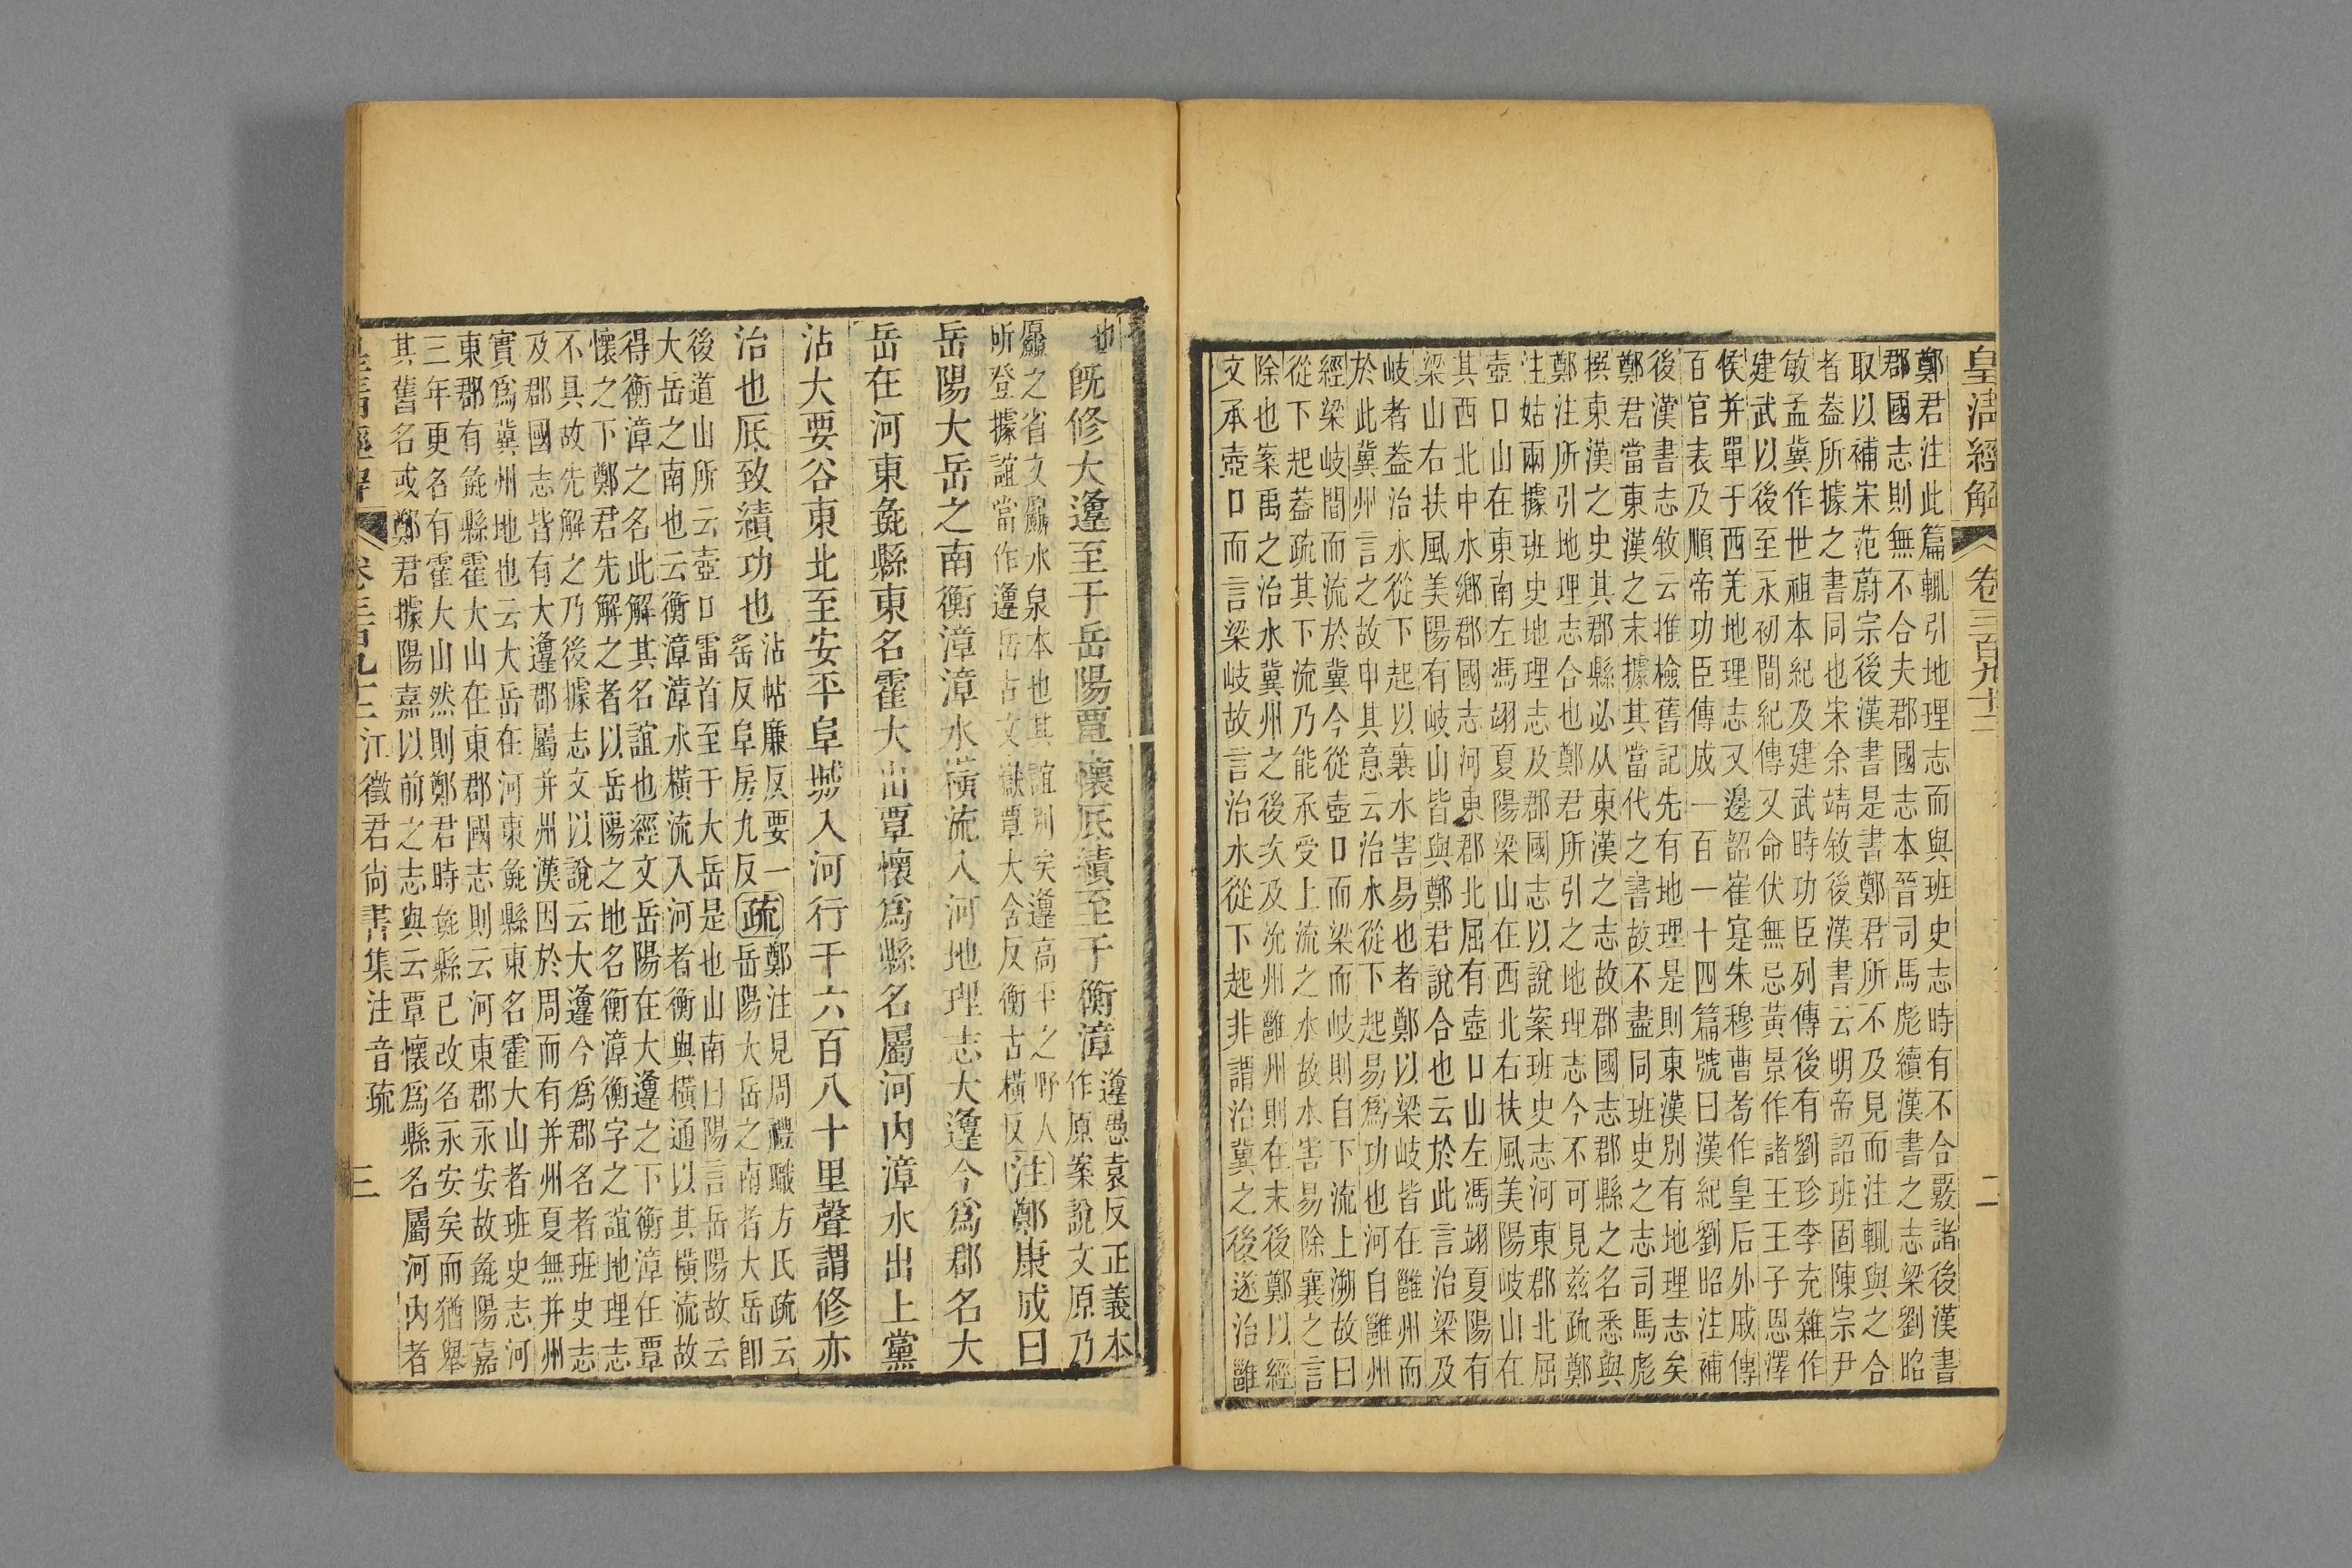 皇清經解 卷三百九十二 二
鄭君注此篇輒引地理志而與班史志時有不合覈諸後漢書
郡國志則無不合夫郡國志本晉司馬彪續漢書之志梁劉昭
取以補宋范蔚宗後漢書是書鄭君所不及見而注輒與之合
者葢所據之書同也宋余靖敘後漢書云明帝詔班固陳宗尹
敏孟冀作世祖本紀及建武時功臣列傳後有劉珍李充雜作
建武以後至永初間紀傳又命伏無忌黃景作諸王王子恩澤
侯并單于西羌地理志又邊韶崔寔朱穆曹喬作皇后外戚傳
百官表及順帝功臣傳成一百一十四篇號曰漢紀劉昭注補
後漢書志敘云推檢舊記先有地理是則東漢別有地理志矣
鄭君當東漢之末據其當代之書故不盡同班史之志司馬彪
撰東漢之史其郡縣必从東漢之志故郡國志郡縣之名悉與
鄭注所引地理志合也鄭君所引之地理志今不可見茲疏鄭
注姑兩據班史地理志及郡國志以說案班史志河東郡北屈
壺口山在東南左馮翊夏陽梁山在西北右扶風美陽岐山在
其西北中水鄉郡國志河東郡北屈有壺口山左馮翊夏陽有
梁山右扶風美陽有岐山皆與鄭君說合也云於此言治梁及
岐者葢治水從下起以襄水害易也者鄭以梁岐皆在雝州而
於此冀州言之故申其意云治水從下起易爲功也河自雝州
經梁岐間而流於冀今從壺口而梁而岐則自下流上溯故曰
從下起葢疏其下流乃能承受上流之水故水害易除襄之言
除也案禹之治水冀州之後次及沇州雝州則在末後鄭以經
文承壺口而言梁岐故言治水從下起非謂治冀之後遂治雝
也
旣修大𨗿至于岳陽覃懷厎績至于衡漳
𨗿愚袁反正義本
作原案說文原乃
厵之省文厵水泉本也其誼別矣𨗿高平之野人
所登據誼當作𨗿岳古文嶽覃大含反衡古橫反
注鄭康成曰
岳陽大岳之南衡漳漳水橫流入河地理志大𨗿今爲郡名大
岳在河東彘縣東名霍大山覃懷爲縣名屬河內漳水出上黨
沾大要谷東北至安平阜城入河行千六百八十里聲謂修亦
治也厎致績功也
沾帖廉反要一
窅反阜房九反
疏
鄭注見周禮職方氏疏云
岳陽大岳之南者大岳卽
後道山所云壺口雷首至于大岳是也山南曰陽言岳陽故云
大岳之南也云衡漳漳水橫流入河者衡與橫通以其橫流故
得衡漳之名此解其名誼也經文岳陽在大𨗿之下衡漳在覃
懷之下鄭君先解之者以岳陽之地名衡漳衡字之誼地理志
不具故先解之乃後據志文以說云大𨗿今爲郡名者班史志
及郡國志皆有大𨗿郡屬并州漢因於周而有并州夏無并州
實爲冀州地也云大岳在河東彘縣東名霍大山者班史志河
東郡有彘縣霍大山在東郡國志則云河東郡永安故彘陽嘉
三年更名有霍大山然則鄭君時彘縣已改名永安矣而猶舉
其舊名或鄭君據陽嘉以前之志與云覃懷爲縣名屬河內者
皇清經解 卷三百九十二 江徵君尚書集注音疏 三